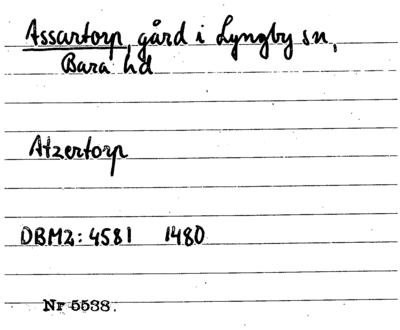 Assartorp, gård i Lyngby sn,
Bara hd
Atzertorp
DBM2:4581 1480
Nr 5538.